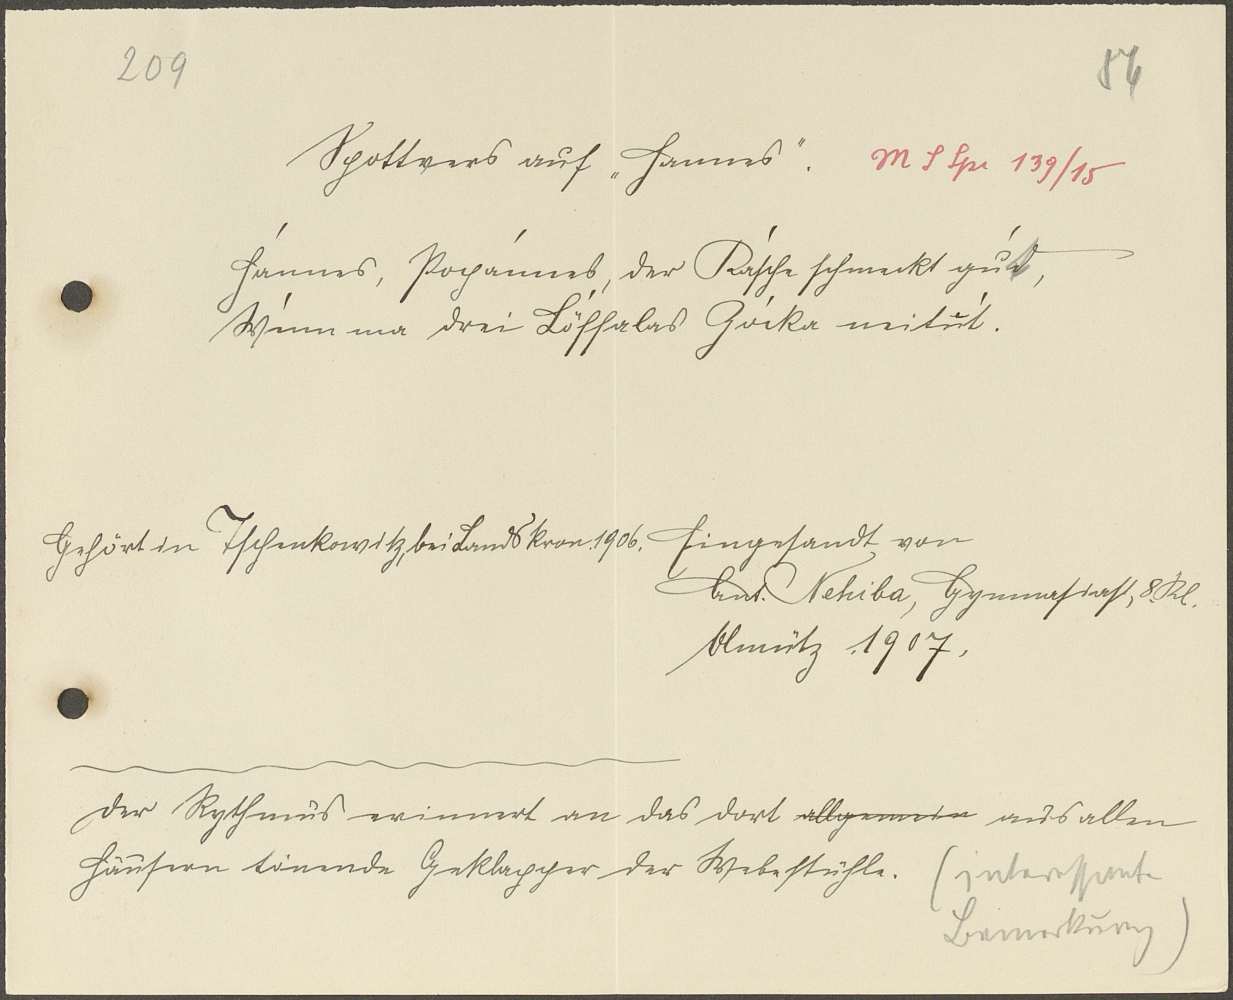 209
86
Spottvers auf „Hannes“. M S Spr 139/15
Hánnes, Popánnes, der Rásche schmeckt gút,
Wénn ma drei Löffalas Gócka neitút.
Gehört in Tschenkowitz, bei Landskron. 1906. Eingesandt von
Ant. Nehiba, Gymnasiast, 8. Kl.
Olmütz. 1907.
Der Rythmus erinnert an das dort allgemein aus allen
Häusern tönende Geklapper der Webestühle. (interessante
Bemerkung)